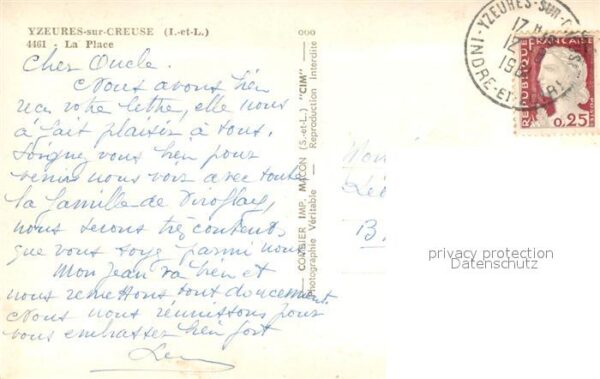 YZEURES-sur-CREUSE (I.-et-L.)
4461 - La Place
Cher Oncle.
Nous avons bien
reçu votre lettre, elle nous
a fait plaisir à tous.
Soignez vous bien pour
venir nous voir avec toute
la famille de Viroflay,
nous serons très contents
que vous soyez parmi nous.
Mon Jean va bien et
nous remettons tout doucement
Nous nous réunissons pour
vous embrasser bien fort
COMBIER IMP. MACON (S.-et-L.) "CIM"
Photographie Véritable - Reproduction Interdite
YZEURES-SUR-
INDRE-ET-
17 H
12
19
RÉPUBLIQUE FRANÇAISE
POSTES
0,25
Mon
Lé
B.
privacy protection
Datenschutz